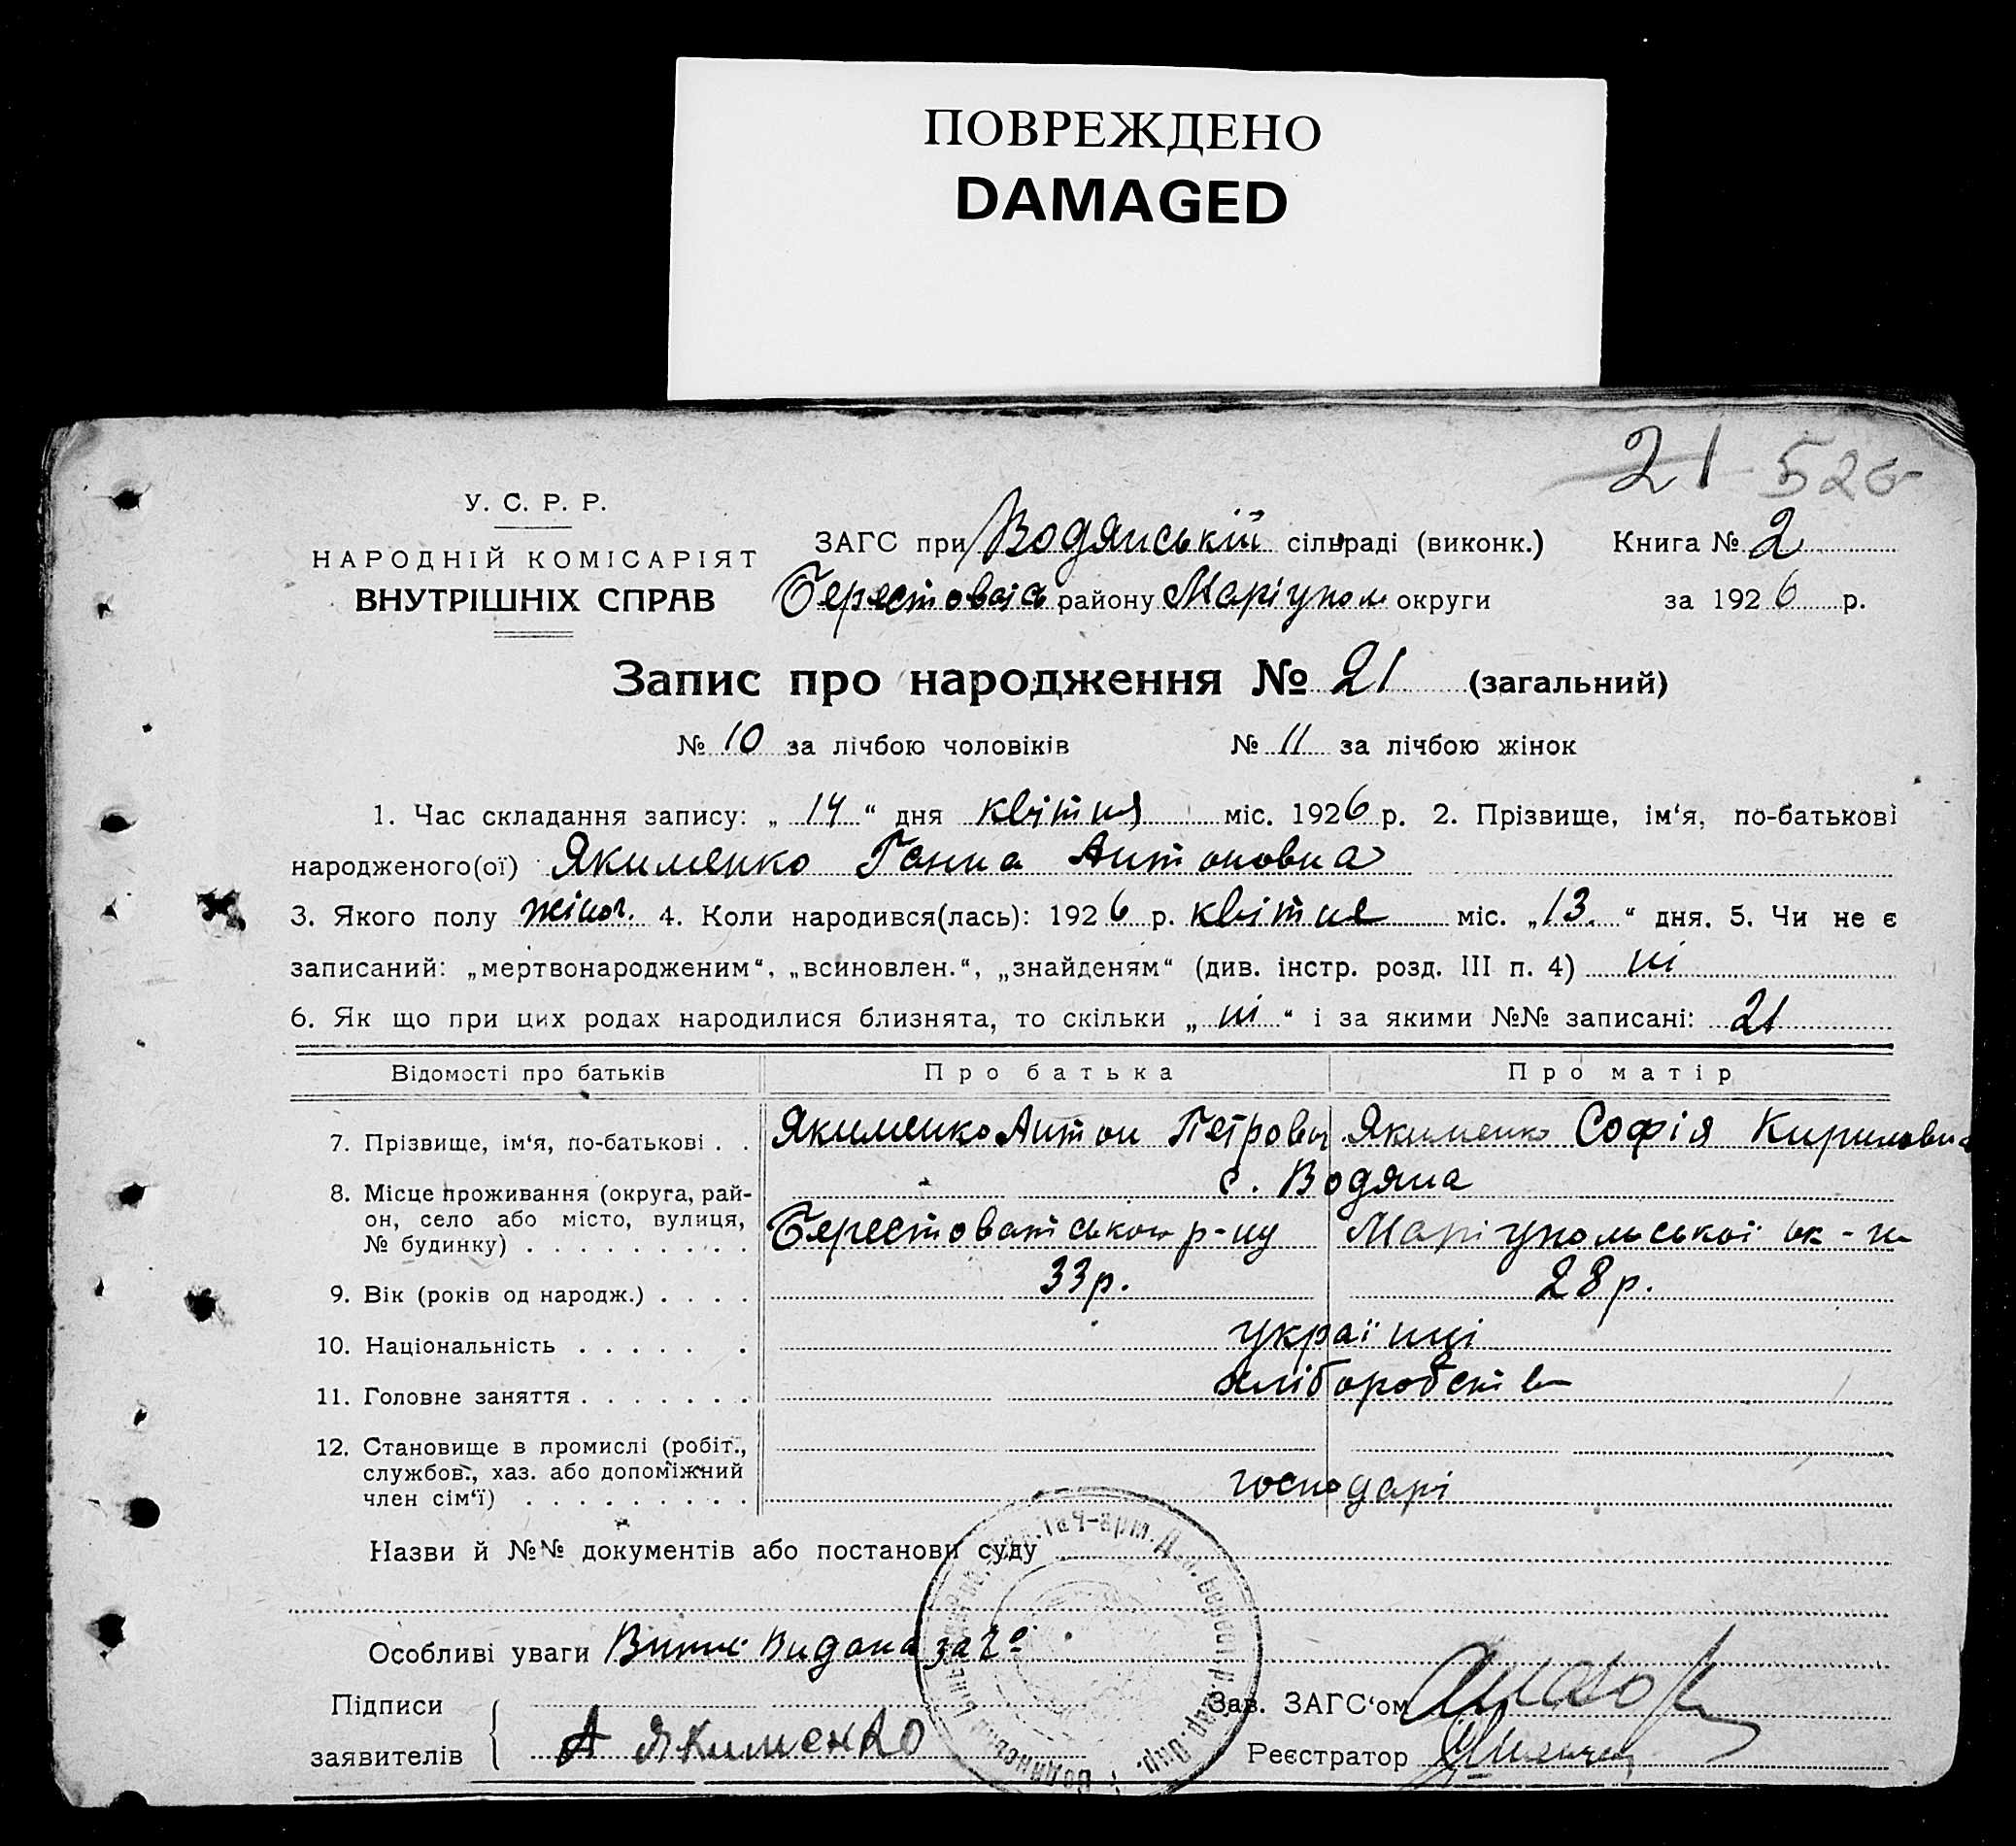 ПОВРЕЖДЕНО
DAMAGED
21 526
У. С. Р. Р.
НАРОДНІЙ КОМІСАРІЯТ
ВНУТРІШНІХ СПРАВ
ЗАГС при Водянській сільраді (виконк.) Книга № 2
району Маріупол округи за 1926 р.
Запис про народження № 21 (загальний)
№ 10 за лічбою чоловіків № 11 за лічбою жінок
1. Час складання запису: „ 14 “ дня квітня міс. 1926 р. 2. Прізвище, ім‘я, по-батькові
народженого(ої) Якименко Ганна Антоновна
3. Якого полу жіноч. 4. Коли народився(лась): 1926 р. квітня міс. „13.“ дня. 5. Чи не є
записаний: „мертвонародженим“, „всиновлен.“, „знайденям“ (див. інстр. розд. III п. 4) ні
6. Як що при цих родах народилися близнята, то скільки „ ні “ і за якими №№ записані: 21
Відомості про батьків Про батька Про матір
7. Прізвище, ім‘я, по-батькові . . Якименко Антон Петрович Якименко Софія Кириловна
8. Місце проживання (округа, рай-
он, село або місто, вулиця,
№ будинку) . . . . . . . . .
с. Водяна
Берестоватського р-ну Маріупольської ок-ги
9. Вік (років од народж.) . . . . 33 р. 28 р.
10. Національність . . . . . . українці
11. Головне заняття . . . . . . . хліборобство
12. Становище в промислі (робіт.,
службов., хаз. або допоміжний
член сім‘ї) . . . . . . . . . господарі
Назви й №№ документів або постанови суду
Особливі уваги Видана
Підписи
заявителів А Якименко
Зав. ЗАГС‘ом
Реєстратор